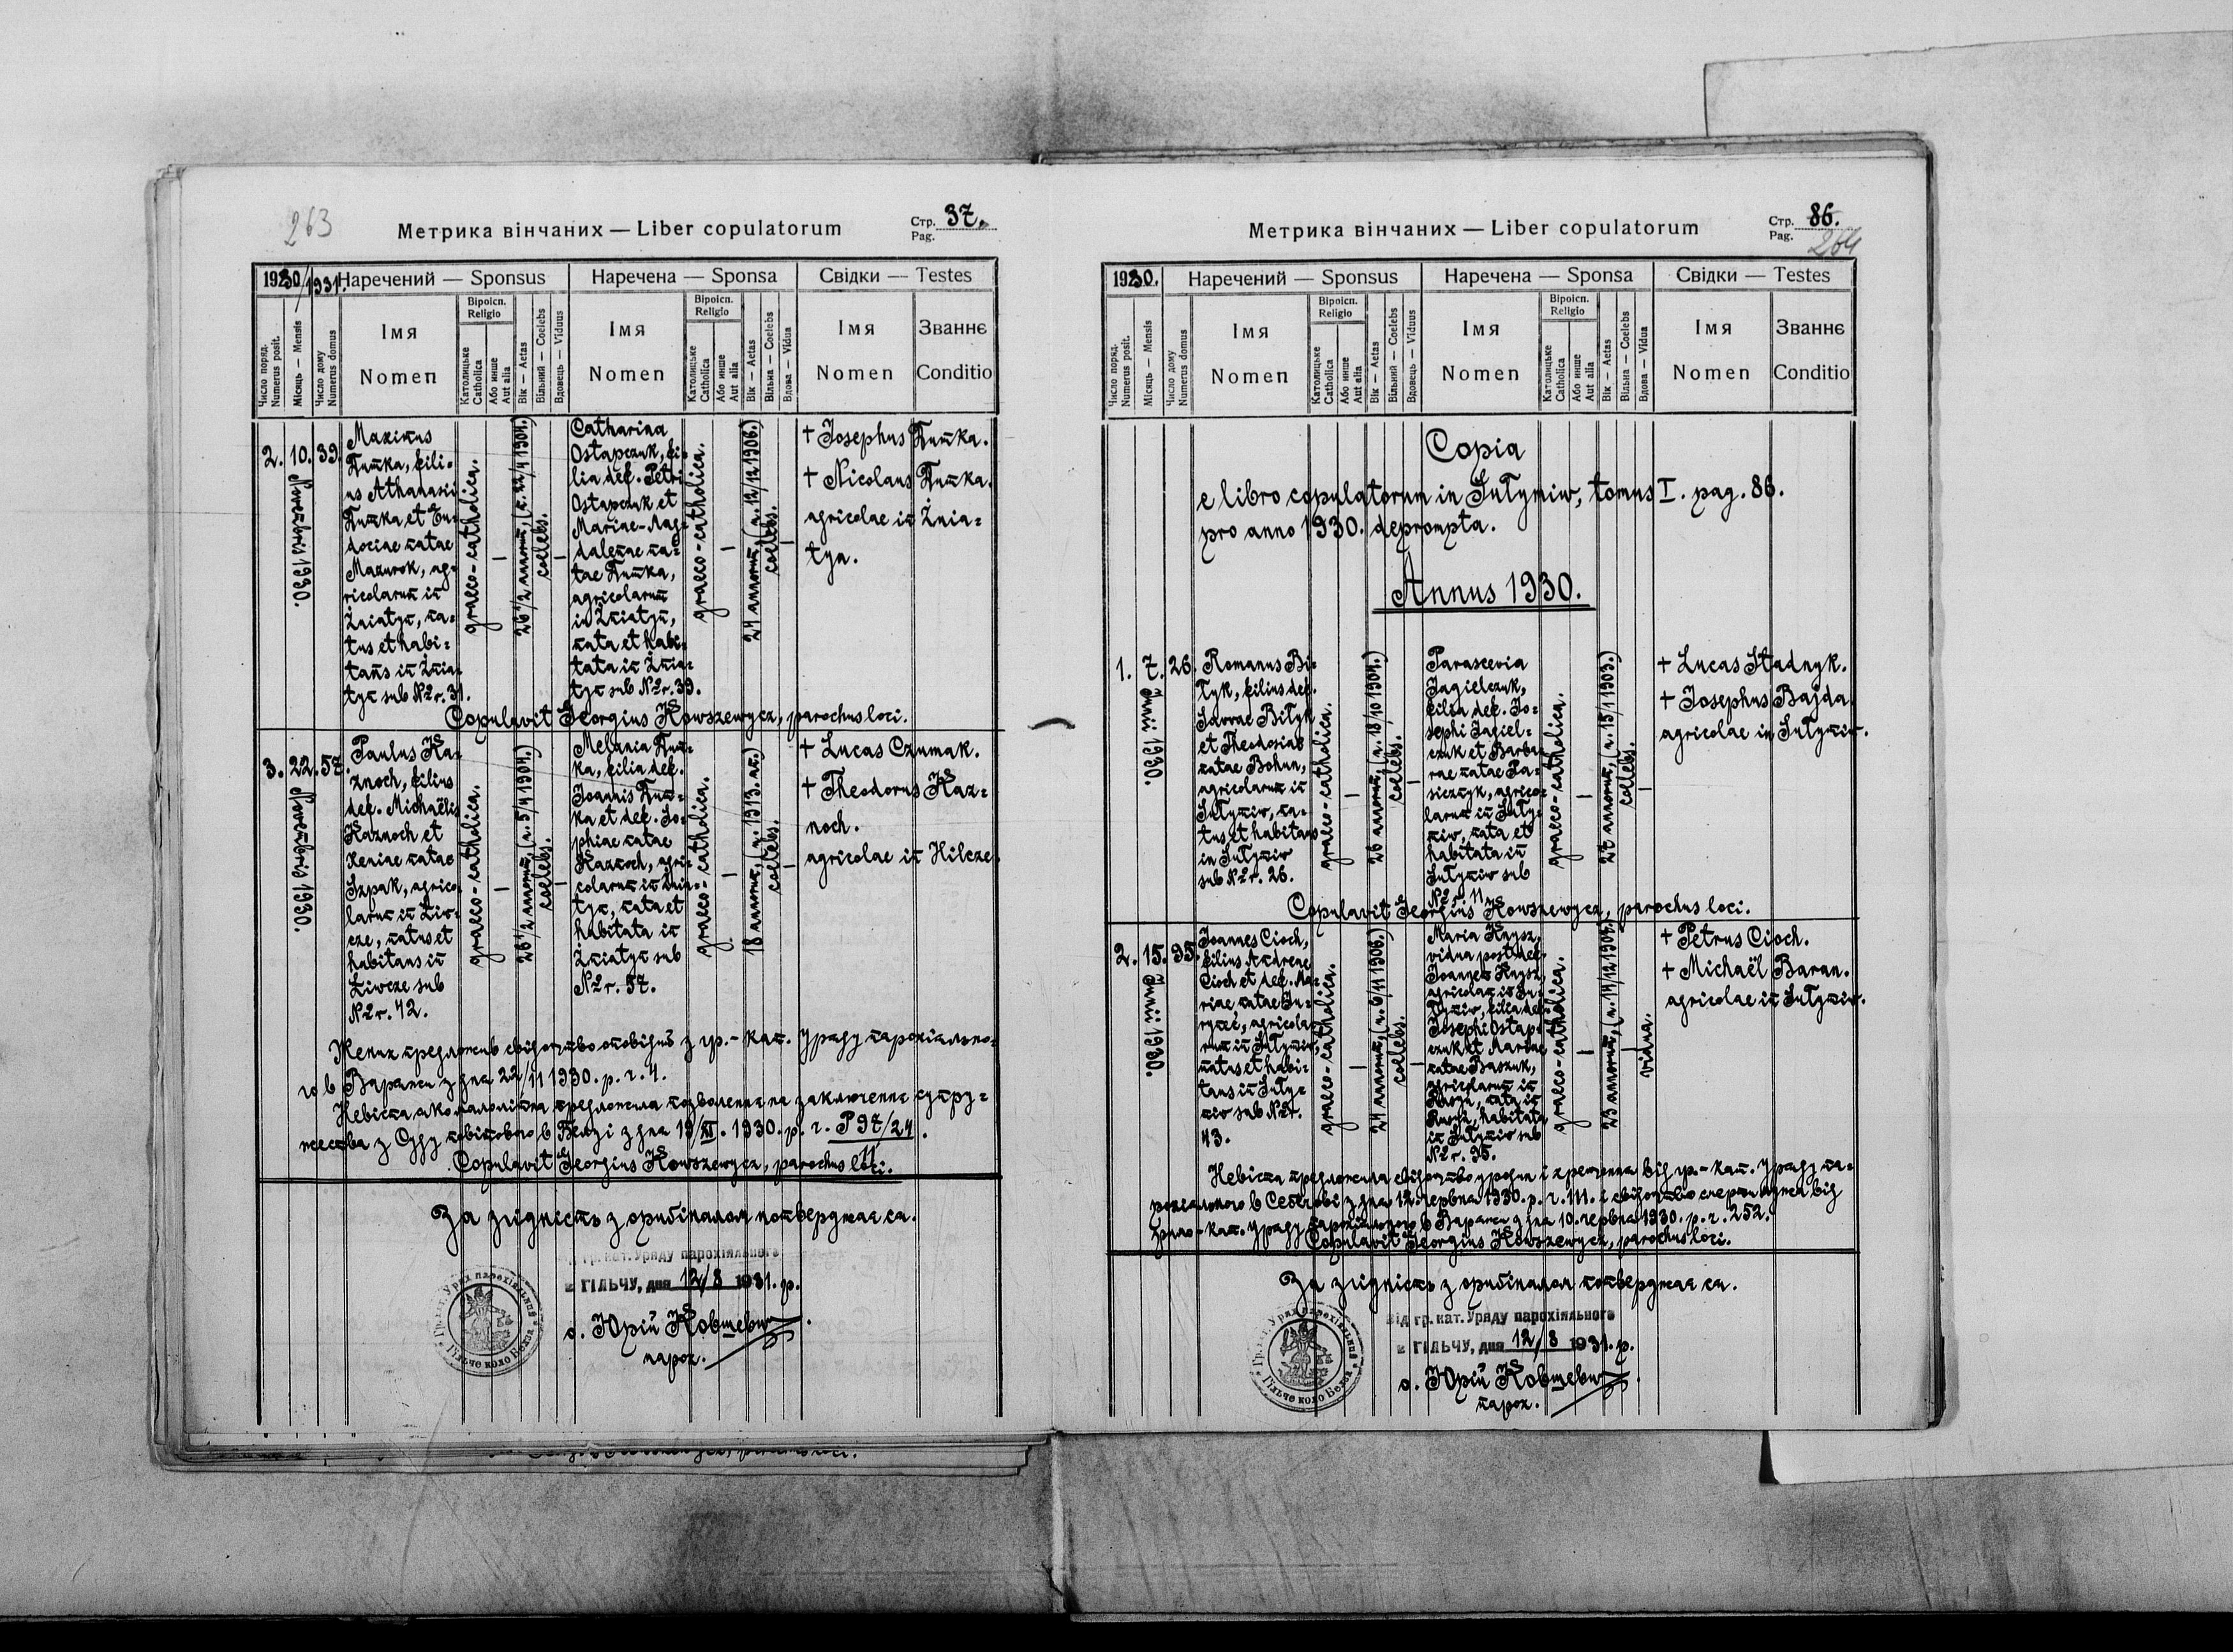 263
Метрика вінчаних — Liber copulatorum
Стр. 37.
Pag.
1930/1931
Наречений — Sponsus
Наречена — Sponsa
Свідки — Testes
Число поряд.
Numerus posit.
Місяць — Mensis
Число дому
Numerus domus
Імя
Nomen
Віроісп.
Religio
Католицьке
Catholica
Або инше
Aut alia
Вік — Aetas
Вільний — Coelebs
Вдовець — Viduus
Імя
Nomen
Віроісп.
Religio
Католицьке
Catholica
Або инше
Aut alia
Вік — Aetas
Вільна — Coelebs
Вдова — Vidua
Імя
Nomen
Званнє
Conditio
2.
10. Novembris 1930.
39.
Maximus
Питка, fili-
us Athanasii
Питка et Eu-
dociae natae
Mazurok, ag-
ricolarum in
Żniatyn, na-
tus et habi-
tans in Żnia-
tyn sub N2r. 31.
graeco-catholica.
—
26 1/2 annorum, (n. 22/4 1904.)
coelebs.
—
Catharina
Ostapczuk, fi-
lia def. Petri
Ostapczuk et
Mariae-Mag-
dalenae na-
tae Питка,
agricolarum
in Żniatyn,
nata et habi-
tata in Żnia-
tyn sub N2r. 39.
graeco-catholica.
—
24 annorum, (n. 12/12 1906.)
coelebs.
—
+ Josephus Питка.
+ Nicolaus Питка.
agricolae in Żnia-
tyn.
Copulavit Georgius Kowszewycz, parochus loci.
3.
22. Novembris 1930.
57.
Paulus Ka-
znoch, filius
def. Michaëlis
Kaznoch et
Xeniae natae
Szpak, agrico-
larum in Żiw-
cze, natus et
habitans in
Żiwcze sub
N2r. 42.
graeco-catholica.
—
26 1/2 annorum, (n. 5/4 1904.)
coelebs.
—
Melania Пит-
ка, filia def.
Joannis Пит-
ка et def. So-
phiae natae
Kaznoch, agri-
colarum in Żnia-
tyn, nata et
habitata in
Żniatyn sub
N2r. 57.
graeco-catholica.
—
18 annorum, (n. 1913. an.)
coelebs.
—
+ Lucas Czumak.
+ Theodorus Kaz-
noch.
agricolae in Hilcze.
Жених предложив свідоцтво оповідий з гр.-кат. Уряду парохіально-
го в Варяжи з дня 22/11 1930. р. ч. 4.
Невіста яко малолітна предложила позволення на заключення супру-
жества з Суду повітового в Белзі з дня 19/XI. 1930. р. ч. P 97/24.
11
Copulavit Georgius Kowszewycz, parochus loci.
За згідність з оригіналом потверджая ся.
гр. кат. Уряду парохіяльного
в ГІЛЬЧУ, дня 12/8 1931. р.
о. Юрій Ковшевич
парох.
Гр.кат. Уряд парохіяльний
Гільче коло Белза
Метрика вінчаних — Liber copulatorum
Стр. 86.
Pag.
264
1930.
Наречений — Sponsus
Наречена — Sponsa
Свідки — Testes
Число поряд.
Numerus posit.
Місяць — Mensis
Число дому
Numerus domus
Імя
Nomen
Віроісп.
Religio
Католицьке
Catholica
Або инше
Aut alia
Вік — Aetas
Вільний — Coelebs
Вдовець — Viduus
Імя
Nomen
Віроісп.
Religio
Католицьке
Catholica
Або инше
Aut alia
Вік — Aetas
Вільна — Coelebs
Вдова — Vidua
Імя
Nomen
Званнє
Conditio
Copia
e libro copulatorum in Sułymiw, tomus I. pag. 86.
pro anno 1930. deprompta.
Annus 1930.
1.
7. Junii 1930.
26.
Romanus Bi-
łyk, filius def.
Savvae Biłyk
et Theodosiae
natae Bohun,
agricolarum in
Sułymiw, na-
tus et habitans
in Sułymiw
sub N2r. 26.
graeco-catholica.
—
26 annorum, (n. 18/10 1904.)
coelebs.
—
Parascevia
Jagielczuk,
filia def. Jo-
sephi Jagiel-
czuk et Barba-
rae natae Pa-
sicznyk, agrico-
larum in Suły-
miw, nata et
habitata in
Sułymiw sub
N2r. 11.
graeco-catholica.
—
27 annorum, (n. 15/1 1903.)
coelebs.
—
+ Lucas Stadnyk.
+ Josephus Bajda.
agricolae in Sułymiw.
Copulavit Georgius Kowszewycz, parochus loci.
2.
15. Junii 1930.
95.
Joannes Cioch,
filius Andreae
Cioch et def. Ma-
riae natae Ju-
ryneć, agricola-
rum in Sułymiw,
natus et habi-
tans in Suły-
miw sub N2r.
43.
graeco-catholica.
—
24 annorum, (n. 6/11 1906.)
coelebs.
—
Maria Knysz,
vidua post def.
Joannem Knysz,
agricolam in Su-
łymiw, filia def.
Josephi Ostap-
czuk et Mariae
natae Baszuk,
agricolarum in
nata in
habitata
in Sułymiw sub
N2r. 95.
graeco-catholica.
—
23 annorum, (n. 14/12 1907.)
—
vidua.
+ Petrus Cioch.
+ Michaël Baran.
agricolae in Sułymiw.
Невіста предложила свідоцтво уродин і хрещення від гр.-кат. Уряду па-
рохіального в Себечові з дня 12. червня 1930. р. ч. 111. і свідоцтво смерти мужа від
греко-кат. Уряду парохіального в Варяжи з дня 10. червня 1930. р. ч. 252.
Copulavit Georgius Kowszewycz, parochus loci.
За згідність з оригіналом потверджая ся.
Від гр. кат. Уряду парохіяльного
в ГІЛЬЧУ, дня 12/8 1931. р.
о. Юрій Ковшевич
парох.
Гр.кат. Уряд парохіяльний
Гільче коло Белза